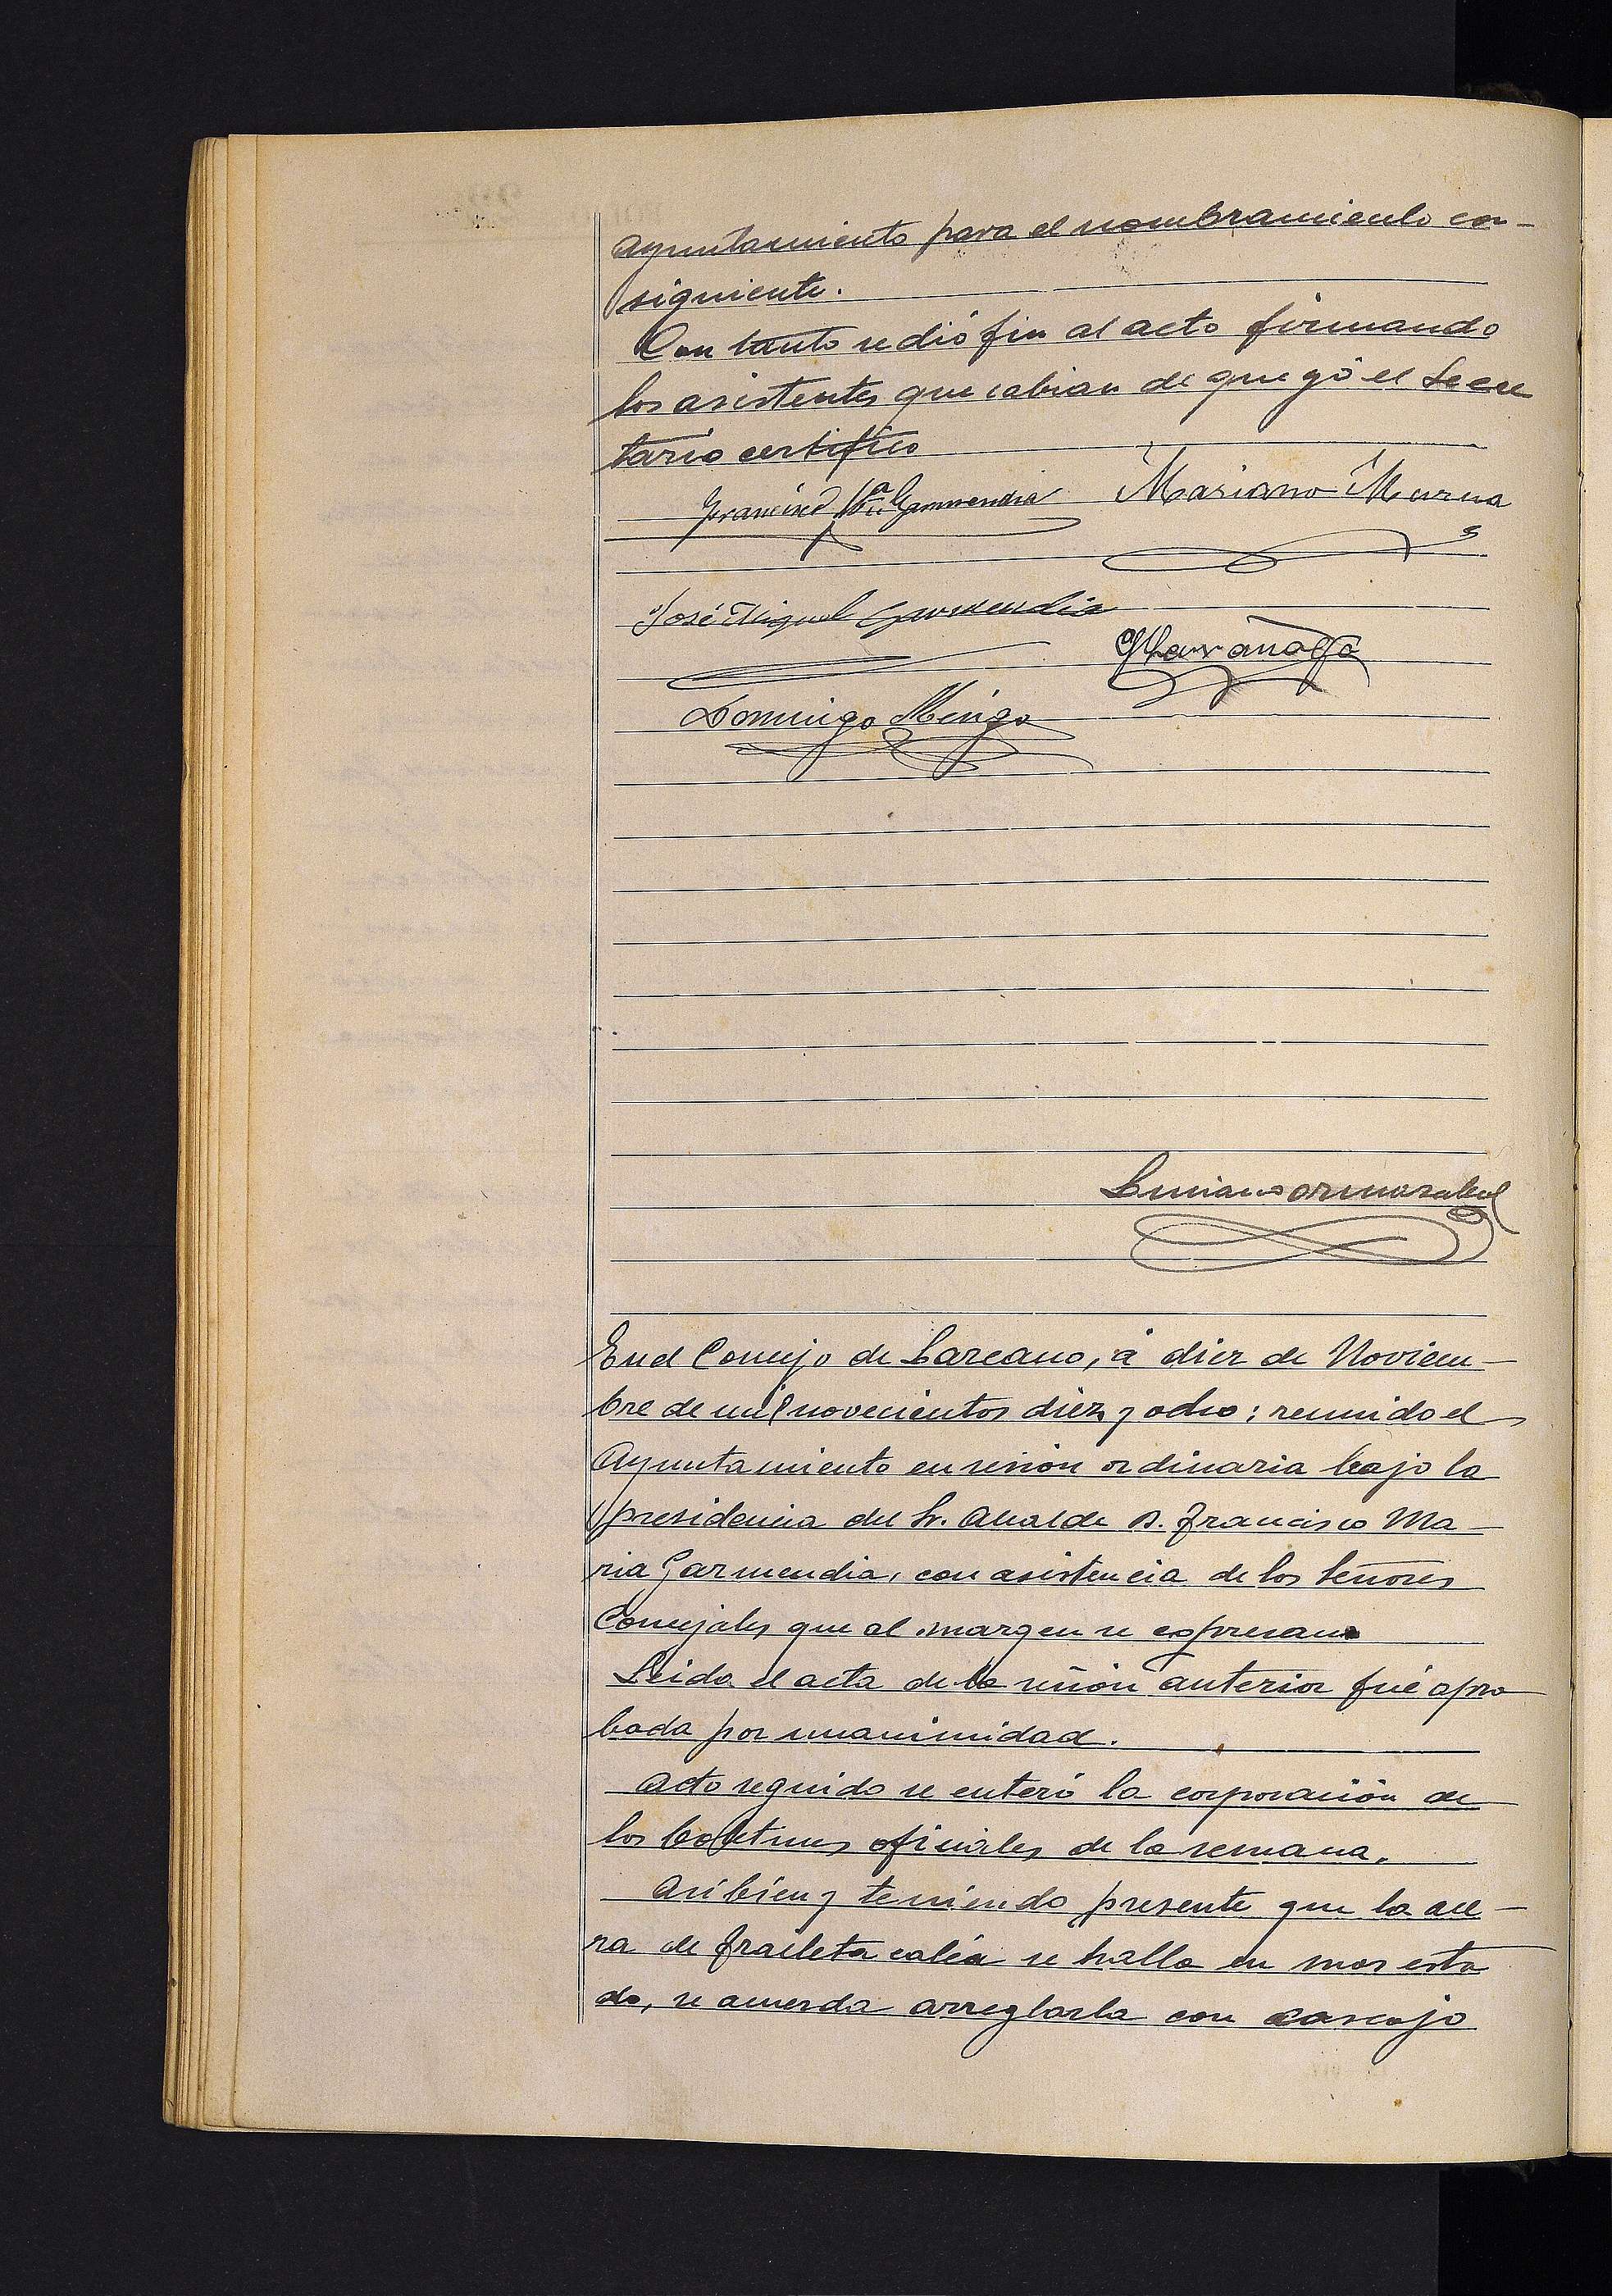 Ayuntamiento para el nombramiento con-
siguiente.
Con tanto se dió fin al acto firmando
los asistentes que sabian de que yó el Secre
tario certifico
Francisco Mª Garmendia Mariano Murua
José Miguel Garmendia
Larrañaga
Domingo
Luciano Ormazabal
En el Concejo de Lazcano, á diez de Noviem-
bre de mil novecientos diez y ocho: reunido el
Ayuntamiento en sesión ordinaria bajo la
presidencia del Sr. Alcalde D. Francisco Ma-
ria Garmendia, con asistencia de los Señores
Concejales que al margen se expresan
Leida el acta de la sesión anterior fué apro
bada por unanimidad.
Acto seguido se enteró la corporación de
los boletines oficiales de la semana.
Asi bien y teniendo presente que la ace-
ra de fraileta calea se halla en mas esta
do, se acuerda arreglarla con cascajo